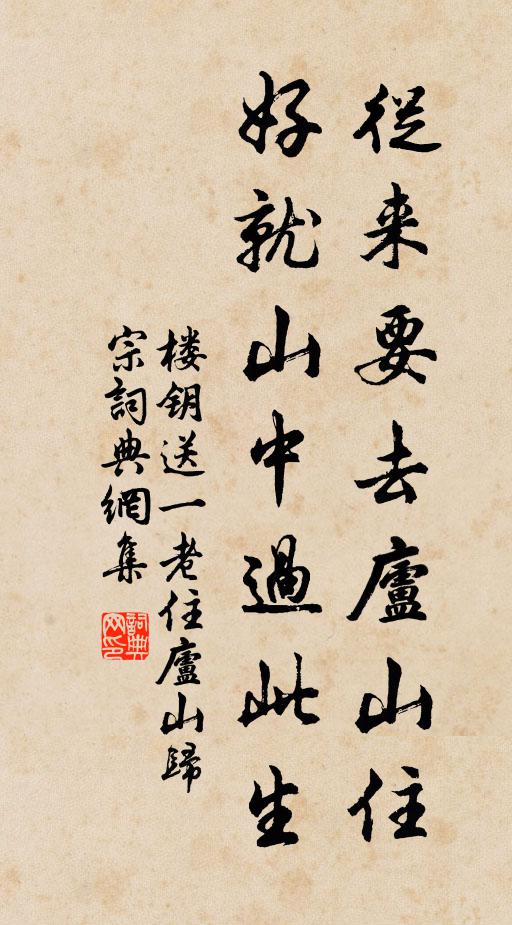 從来要去廬山住
好就山中過此生
楼钥送一老住廬山歸
宗詞典網集
詞典网印